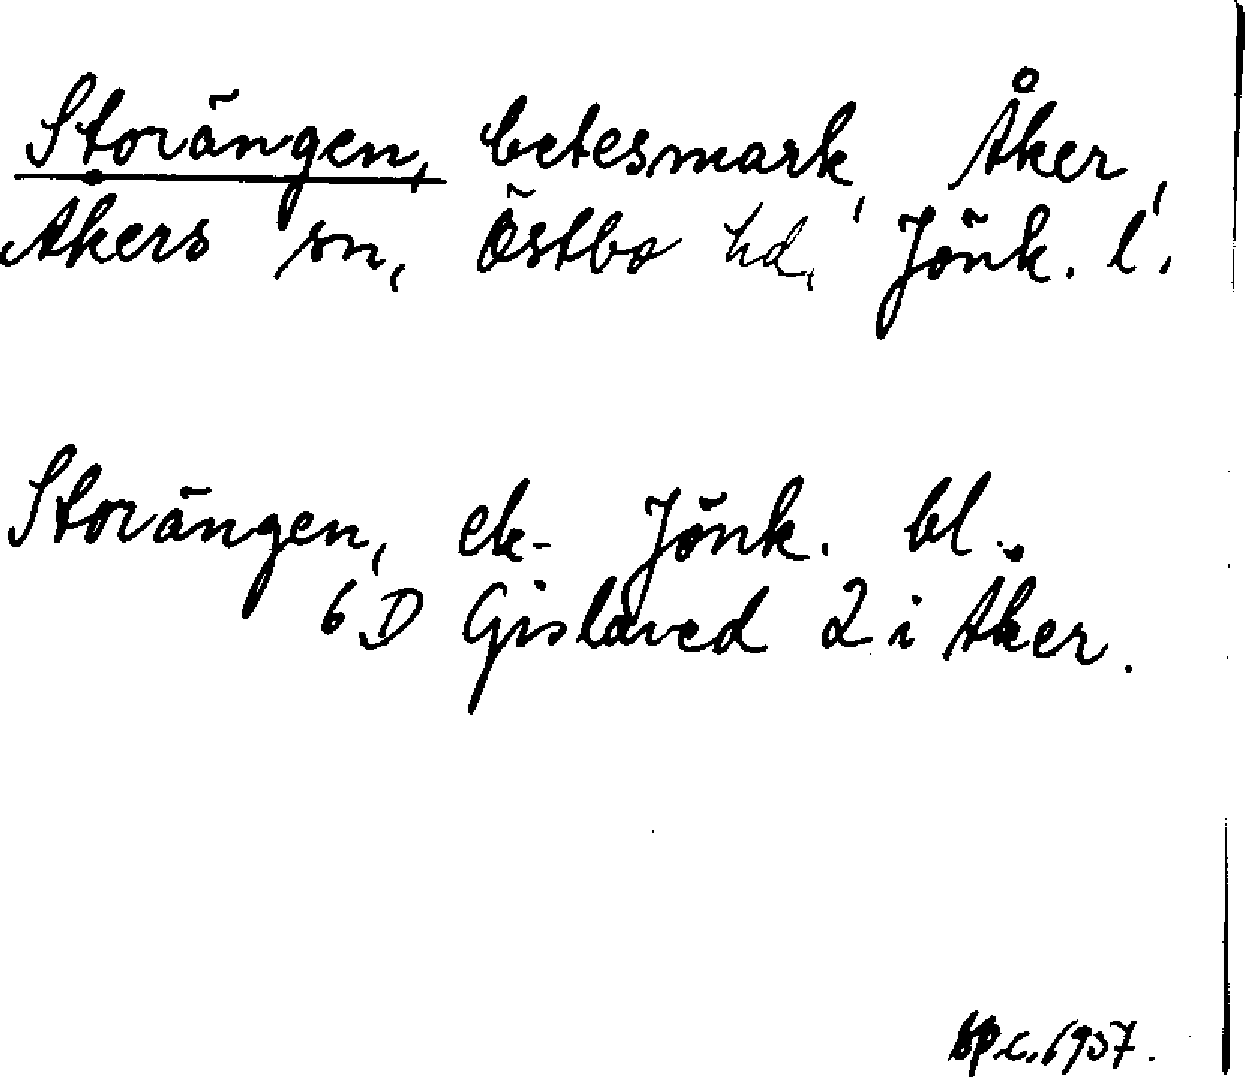 Storängen, betesmark, Åker,
Åkers sn, Östbo hd, Jönk. l.
Storängen, ek. Jönk. bl.
6D Gislaved 2 i Åker.
1957.